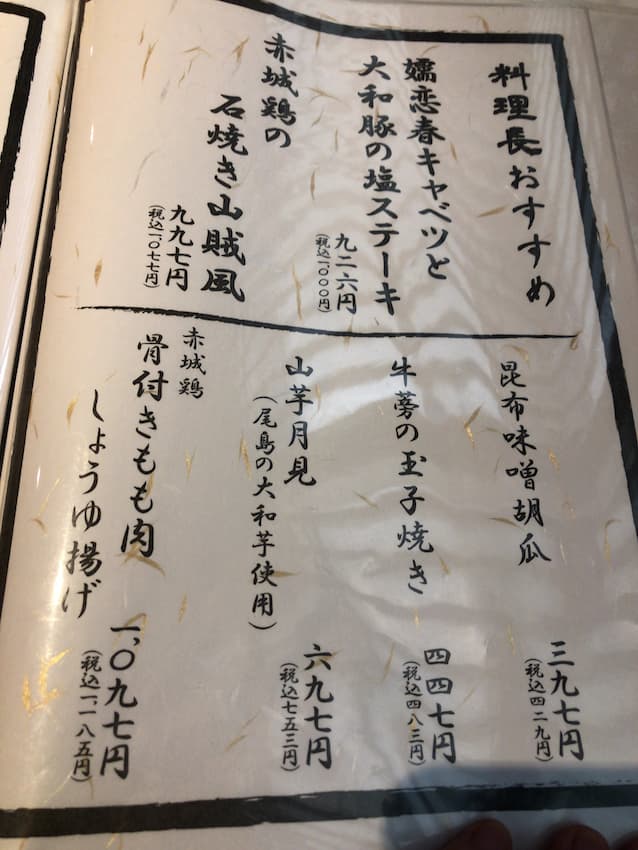 料理長おすすめ
嬬恋春キャベツと
大和豚の塩ステーキ
九二六円
(税込一、〇〇〇円)
赤城鶏の
石焼き山賊風
九九七円
(税込一、〇七七円)
昆布味噌胡瓜
三九七円
(税込四二九円)
牛蒡の玉子焼き
四四七円
(税込四八三円)
山芋月見
(尾島の大和芋使用)
六九七円
(税込七五三円)
赤城鶏
骨付きもも肉
しょうゆ揚げ
一、〇九七円
(税込一、一八五円)